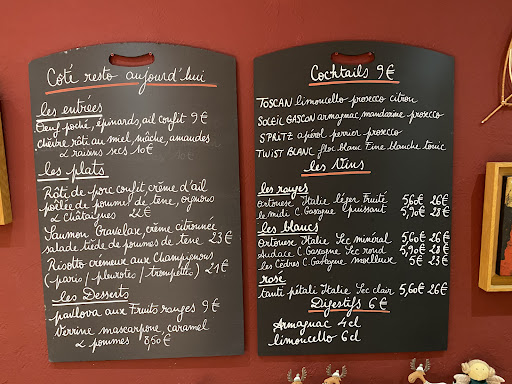 Coté resto aujourd'hui
les entrées
Oeuf poché, épinards, ail confit 9€
chèvre rôti au miel, mâche, amandes
& raisins secs 10€
les plats
Râte de porc confit, crème d'ail
poëlée de pommes de terre, oignons
& châtaignes 22€
Saumon Gravelax, crème citronnée
salade tiède de pommes de terre 23€
Risotto crémeux aux Champignons
(paris / pleurotte / trompette) 21€
les Desserts
pavlova aux Fruits rouges 9€
Verrine mascarpone, caramel
& pommes 8,50€
Cocktails 9€
TOSCAN limoncello prosecco citron
SOLEIL GASCON armagnac, mandarine prosecco
SPRITZ apérol perrier prosecco
TWIST BLANC floc blanc Fine blanche tonic
les Vins
les rouges
Ortonese Italie léger Fruité 5,60€ 26€
le midi C. Gascogne puissant 5,90€ 28€
les blancs
Ortonese Italie Sec minéral 5,60€ 26€
Audace C. Gascogne Sec rond 5,90€ 28€
les Cèdres C. Gascogne moelleux 5€ 23€
rosé
tanté pétali Italie Sec clair 5,60€ 26€
Digestifs 6€
Armagnac 4cl
limoncello 6cl